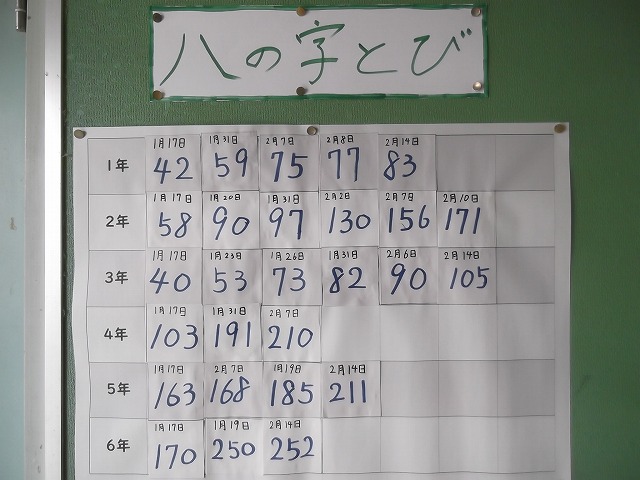 八の字とび
1月17日 1月31日 2月7日 2月8日 2月14日
1年 42 59 75 77 83
1月17日 1月20日 1月31日 2月2日 2月7日 2月10日
2年 58 90 97 130 156 171
1月17日 1月23日 1月26日 1月31日 2月6日 2月14日
3年 40 53 73 82 90 105
1月17日 1月31日 2月7日
4年 103 191 210
1月17日 2月7日 1月19日 2月14日
5年 163 168 185 211
1月17日 1月19日 2月14日
6年 170 250 252